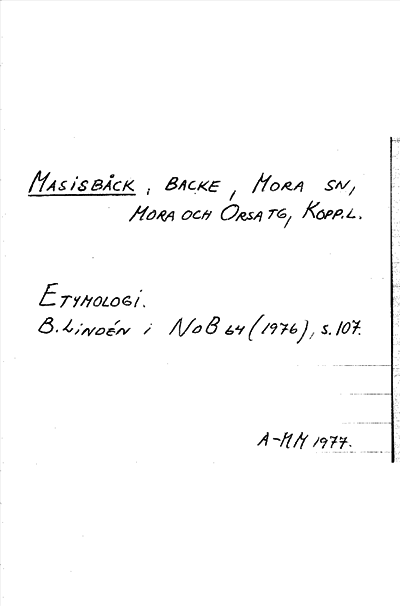 MASISBÄCK, BACKE, MORA SN,
MORA OCH ORSA TG, KOPP.L.
ETYMOLOGI.
B. LINDÉN i NoB 64 (1976), s. 107.
A-MM 1977.